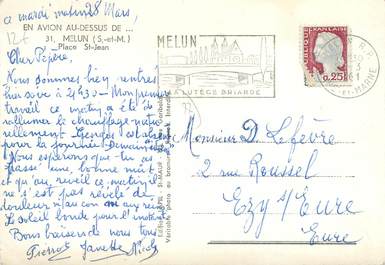 ce mardi matin 28 Mars,
EN AVION AU-DESSUS DE ...
31. MELUN (S.-et-M.)
Place St-Jean
Cher Pépère,
Nous sommes bien rentrés
hier soir à 21h30 - Mon premier
travail ce matin a été de
rallumer le chauffage natu-
rellement. Georges est absent
pour la journée
Nous espérons que tu as
passé une bonne nuit
et qu'au réveil ce matin tu
ne t'es pas révélé de
douleur
Le soleil boude pour l'instant
Bons baisers de nous tous.
Pierrot Janette
MELUN
LA LUTÈCE BRIARDE
R.P.
ET-MARNE
REPUBLIQUE FRANÇAISE
0,25
Monsieur D. Lefèvre
2 rue Roussel
Ezy s/ Eure
Eure